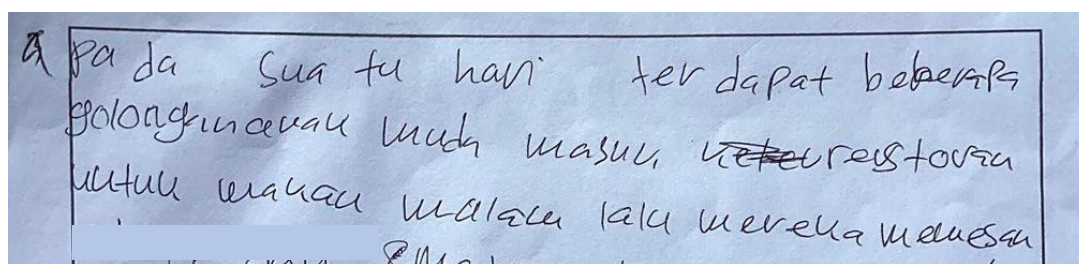 a pada suatu hari terdapat beberapa
golongan anak muda masuk restoran
untuk makan malam lalu mereka memesan